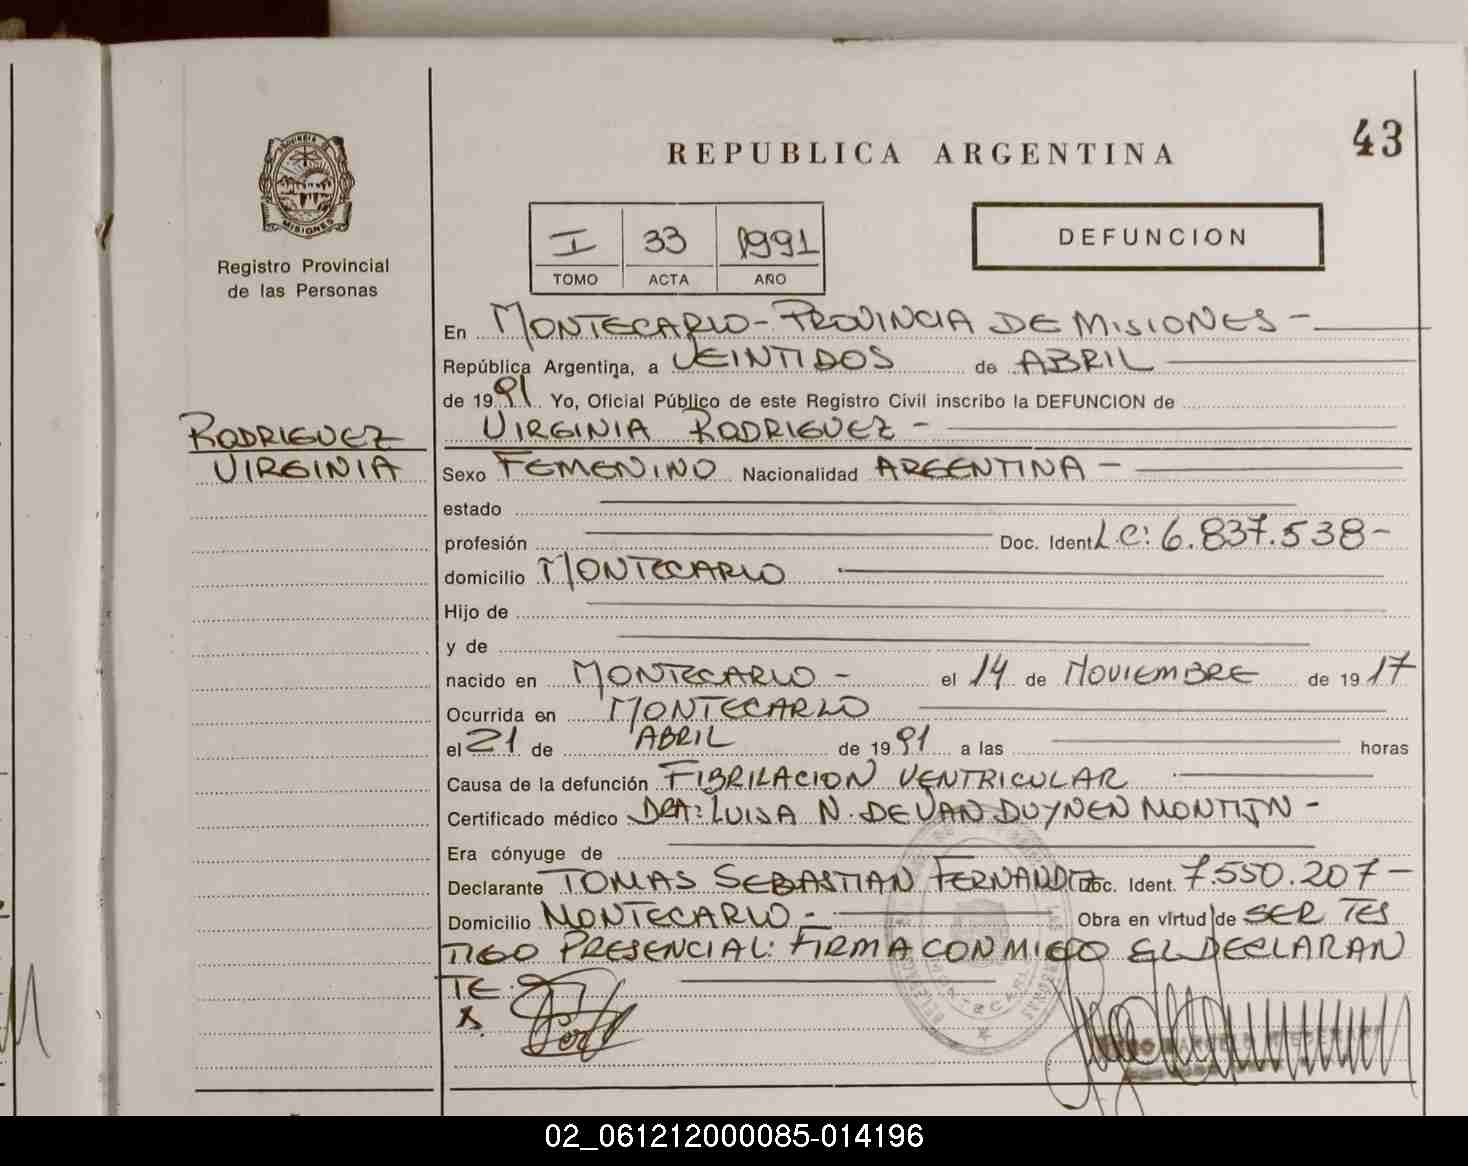 43
REPUBLICA ARGENTINA
PROVINCIA DE
MISIONES
Registro Provincial
de las Personas
I 33 1991
TOMO ACTA AÑO
DEFUNCION
En MONTECARLO - PROVINCIA DE MISIONES -
República Argentina, a VEINTIDOS de ABRIL
de 1991 Yo, Oficial Público de este Registro Civil inscribo la DEFUNCION de
RODRIGUEZ
VIRGINIA
VIRGINIA RODRIGUEZ -
Sexo FEMENINO Nacionalidad ARGENTINA -
estado
profesión Doc. Ident. L.C: 6.837.538-
domicilio MONTECARLO
Hijo de
y de
nacido en MONTECARLO - el 14 de NOVIEMBRE de 1917
Ocurrida en MONTECARLO
el 21 de ABRIL de 1991 a las horas
Causa de la defunción FIBRILACION VENTRICULAR
Certificado médico DRA: LUISA N. DE VAN DUYNEN MONTIJN -
Era cónyuge de
Declarante TOMAS SEBASTIAN FERNANDEZ Doc. Ident. 7.550.207-
Domicilio MONTECARLO - Obra en virtud de SER TES
TIGO PRESENCIAL: FIRMA CONMIGO EL DECLARAN
TE.
X
02_061212000085-014196